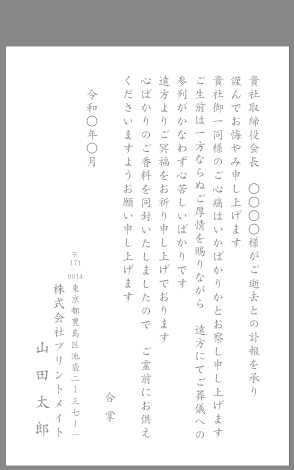 貴社取締役会長　〇〇〇〇様がご逝去との訃報を承り
謹んでお悔やみ申し上げます
貴社御一同様のご心痛はいかばかりかとお察し申し上げます
ご生前は一方ならぬご厚情を賜りながら　遠方にてご葬儀への
参列がかなわず心苦しいばかりです
遠方よりご冥福をお祈り申し上げております
心ばかりのご香料を同封いたしましたので　ご霊前にお供え
くださいますようお願い申し上げます
合掌
令和〇年〇月
〒171-0014
東京都豊島区池袋二-三七-一
株式会社プリントメイト
山田太郎